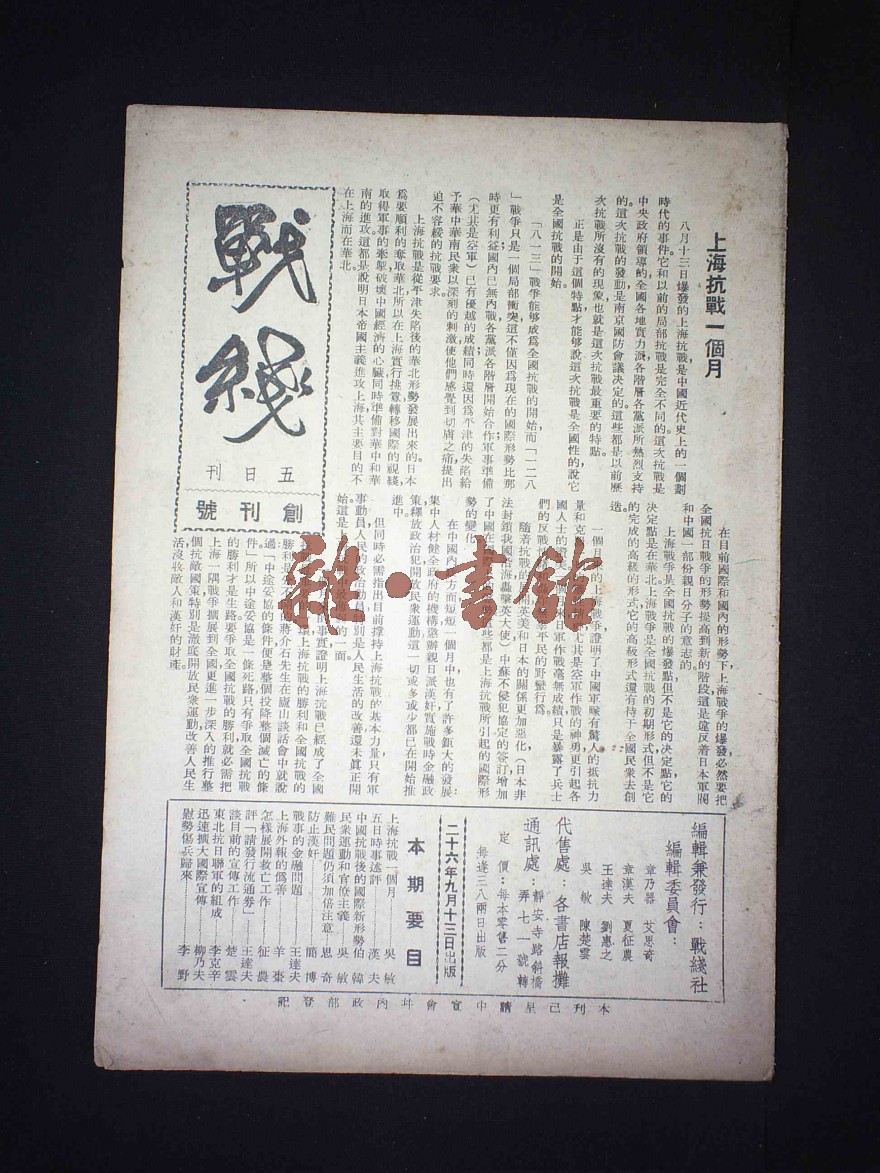 上海抗戰一個月
八月十三日爆發的上海抗戰是中國近代史上的一個劃
時代的事件它和以前的局部抗戰是完全不同的這次抗戰是
中央政府領導的全國各地實力派各階層各黨派所熱烈支持
的這次抗戰的發動是南京國防會議決定的這些都是以前歷
次抗戰所沒有的現象也就是這次抗戰最重要的特點。
正是由于這個特點才能够說這次抗戰是全國性的說它
是全國抗戰的開始。
「八一三」戰爭能够成爲全國抗戰的開始而「一二八
」戰爭只是一個局部衝突這不僅因爲現在的國際形勢比那
時更有利益國內已無內戰各黨派各階層開始合作軍事準備
(尤其是空軍)已有優越的成績同時還因爲平津的失陷給
予華中華南民衆以深刻的刺激使他們感覺到切膚之痛提出
迫不容緩的抗戰要求。
上海抗戰是從平津失陷後的華北形勢發展出來的日本
爲要順利的奪取華北所以在上海實行挑釁轉移國際的視綫
取得軍事的牽掣破壞中國經濟的心臟同時準備對華中和華
南的進攻這都是說明日本帝國主義進攻上海其主要目的不
在上海而在華北。
戰綫
五日刊
創刊號
在目前國際和國內的形勢下上海戰爭的爆發必然要把
全國抗日戰爭的形勢提高到新的階段這是違反着日本軍閥
和中國一部份親日分子的意志的。
上海戰爭是全國抗戰的爆發點但不是它的決定點它的
決定點是在華北上海戰爭是全國抗戰的初期形式但不是它
的完成的高級的形式它的高級形式還有待于全國民衆去創
造。
一個月
的上海戰爭證明了中國軍隊有驚人的抵抗力
量和克
尤其是空軍作戰的神勇更引起各
國人士的
軍作戰毫無成績只是暴露了兵士
們的反戰
平民的野蠻行爲。
隨着抗戰的
英美和日本的關係更加惡化(日本非
法封鎖我國沿海轟擊英大使)中蘇不侵犯協定的簽訂增加
了中國在
這些都是上海抗戰所引起的國際形
勢的變化。
在中國內
方面短短一個月中也有了許多鉅大的發展:
集中人材健全政府的機構懲辦親日派漢奸實施戰時金融政
策釋放政治犯開放民衆運動這一切或多或少都已在開始推
進中。
但同時必需指出目前撑持上海抗戰的基本力量只有軍
事動員人民的政治動員特別是人民生活的改善還未眞正開
始這是
的一面。
的事實證明上海抗戰已經成了全國
上海抗戰的勝利和全國抗戰的
勝利是分不開的蔣介石先生在廬山談話會中就說
過「中途妥協的條件便是整個投降整個滅亡的條
件」所以中途妥協是一條死路只有爭取全國抗戰
的勝利才是生路要爭取全國抗戰的勝利就必需把
上海一隅戰爭擴展到全國更進一步深入的推行整
個抗敵國策特別是澈底開放民衆運動改善人民生
活沒收敵人和漢奸的財產。
編輯兼發行:戰綫社
編輯委員會:
章乃器 艾思奇
章漢夫 夏征農
王達夫 劉惠之
吳敏 陳楚雲
代售處:各書店報攤
通訊處:靜安寺路斜橋
弄七一號轉
定價:每本零售二分
每逢三八兩日出版
二十六年九月十三日出版
本期要目
上海抗戰一個月……吳敏
五日時事述評……漢夫
中國抗戰後的國際新形勢……伯韓
民衆運動和官僚主義……吳敏
難民問題仍須加倍注意……思奇
防止漢奸……簡博
戰事的金融問題……王達夫
上海外報的僞善……羊棗
怎樣展開救亡工作……征農
評「請發行流通券」……王達夫
談目前的宣傳工作……楚雲
東北抗日聯軍的組成……李克辛
迅速擴大國際宣傳……柳乃夫
慰勞傷兵歸來……李野
本刊已呈請中宣會幷內政部登記
雜·書館